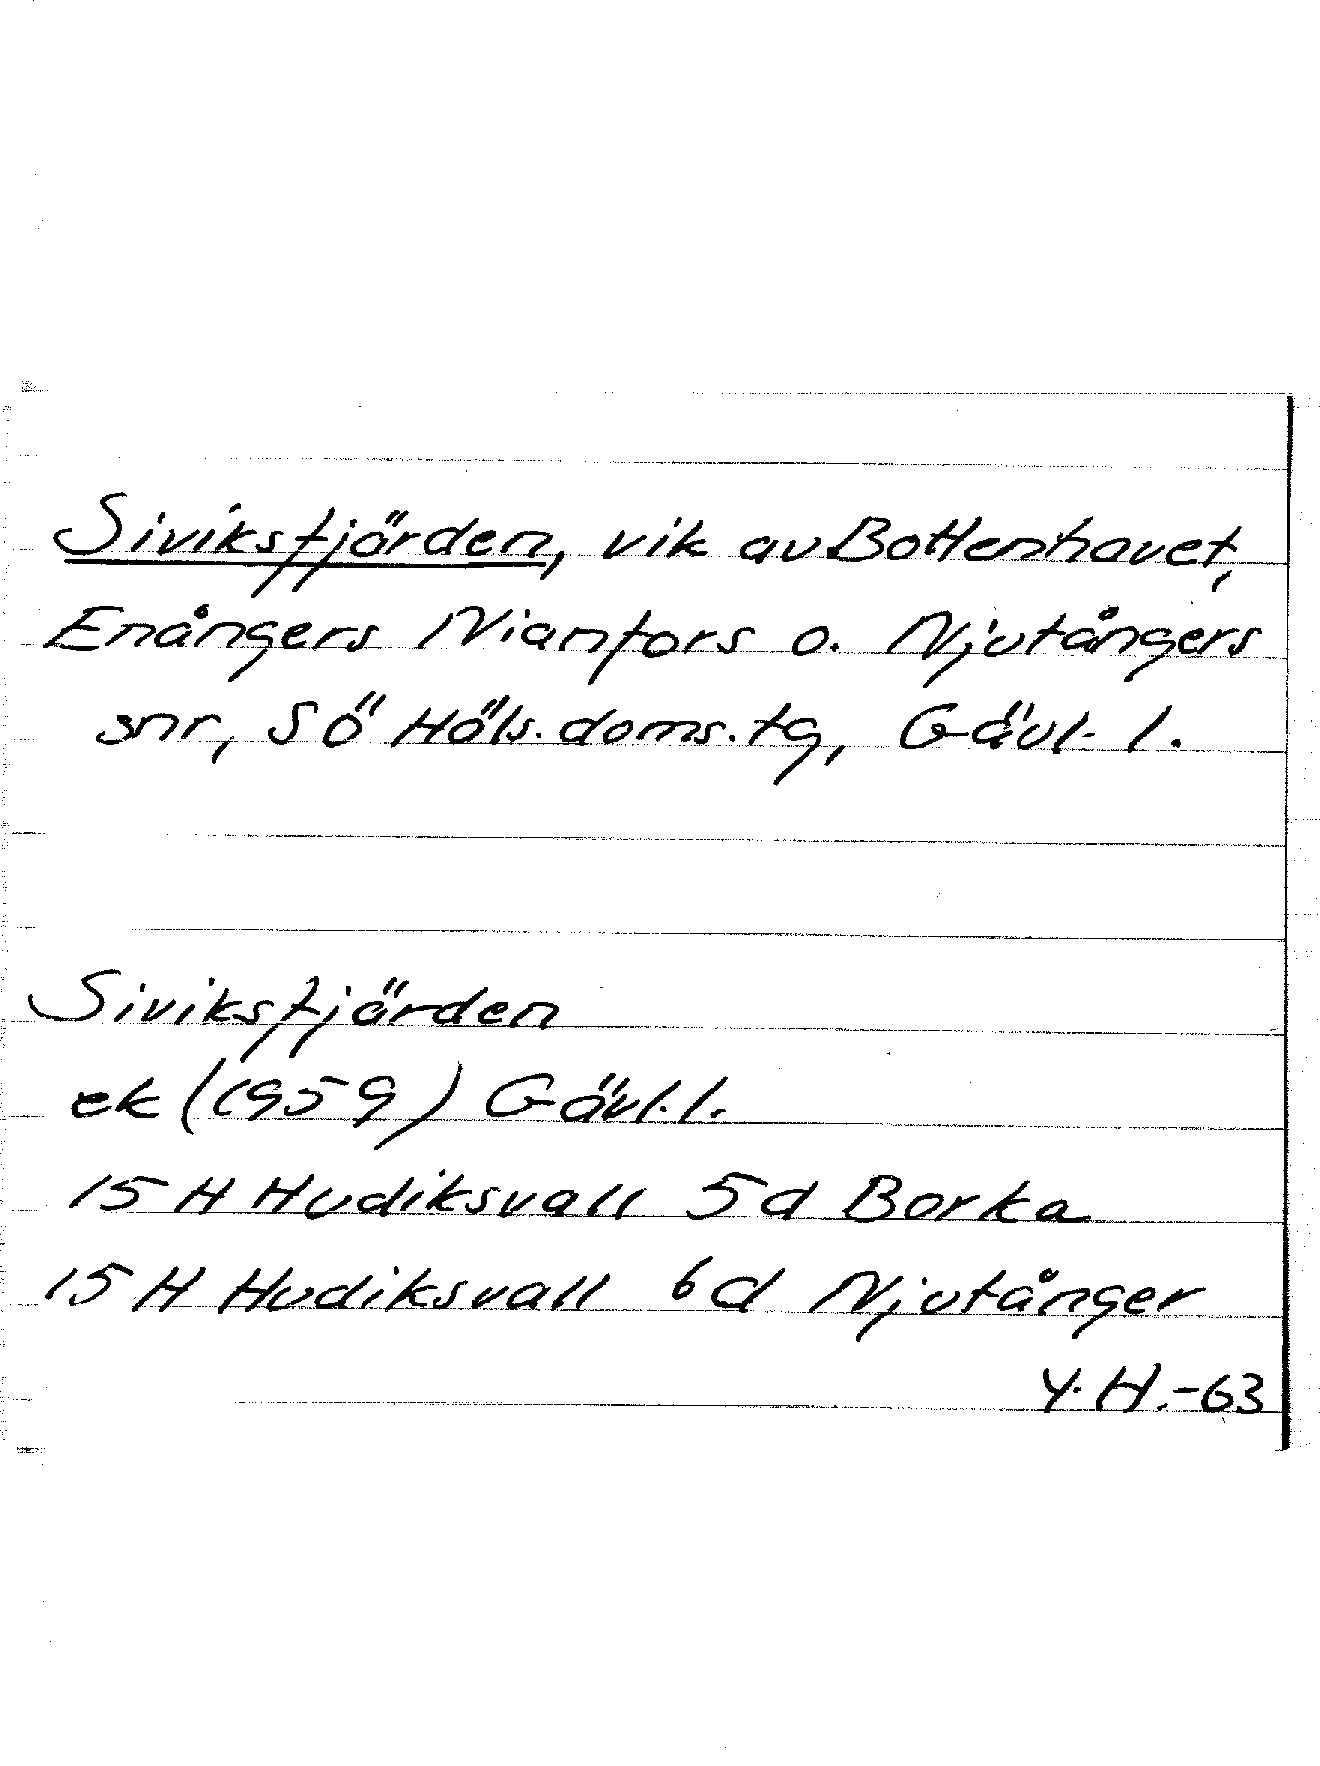 Siviksfjärden, vik av Bottenhavet,
Enångers Nianfors o. Njutångers
snr, Sö Häls. doms. tg, Gävl. l.
Siviksfjärden
ek (1959) Gävl. l.
15 H Hudiksvall 5d Borka
15 H Hudiksvall 6d Njutånger
Y. H. -63